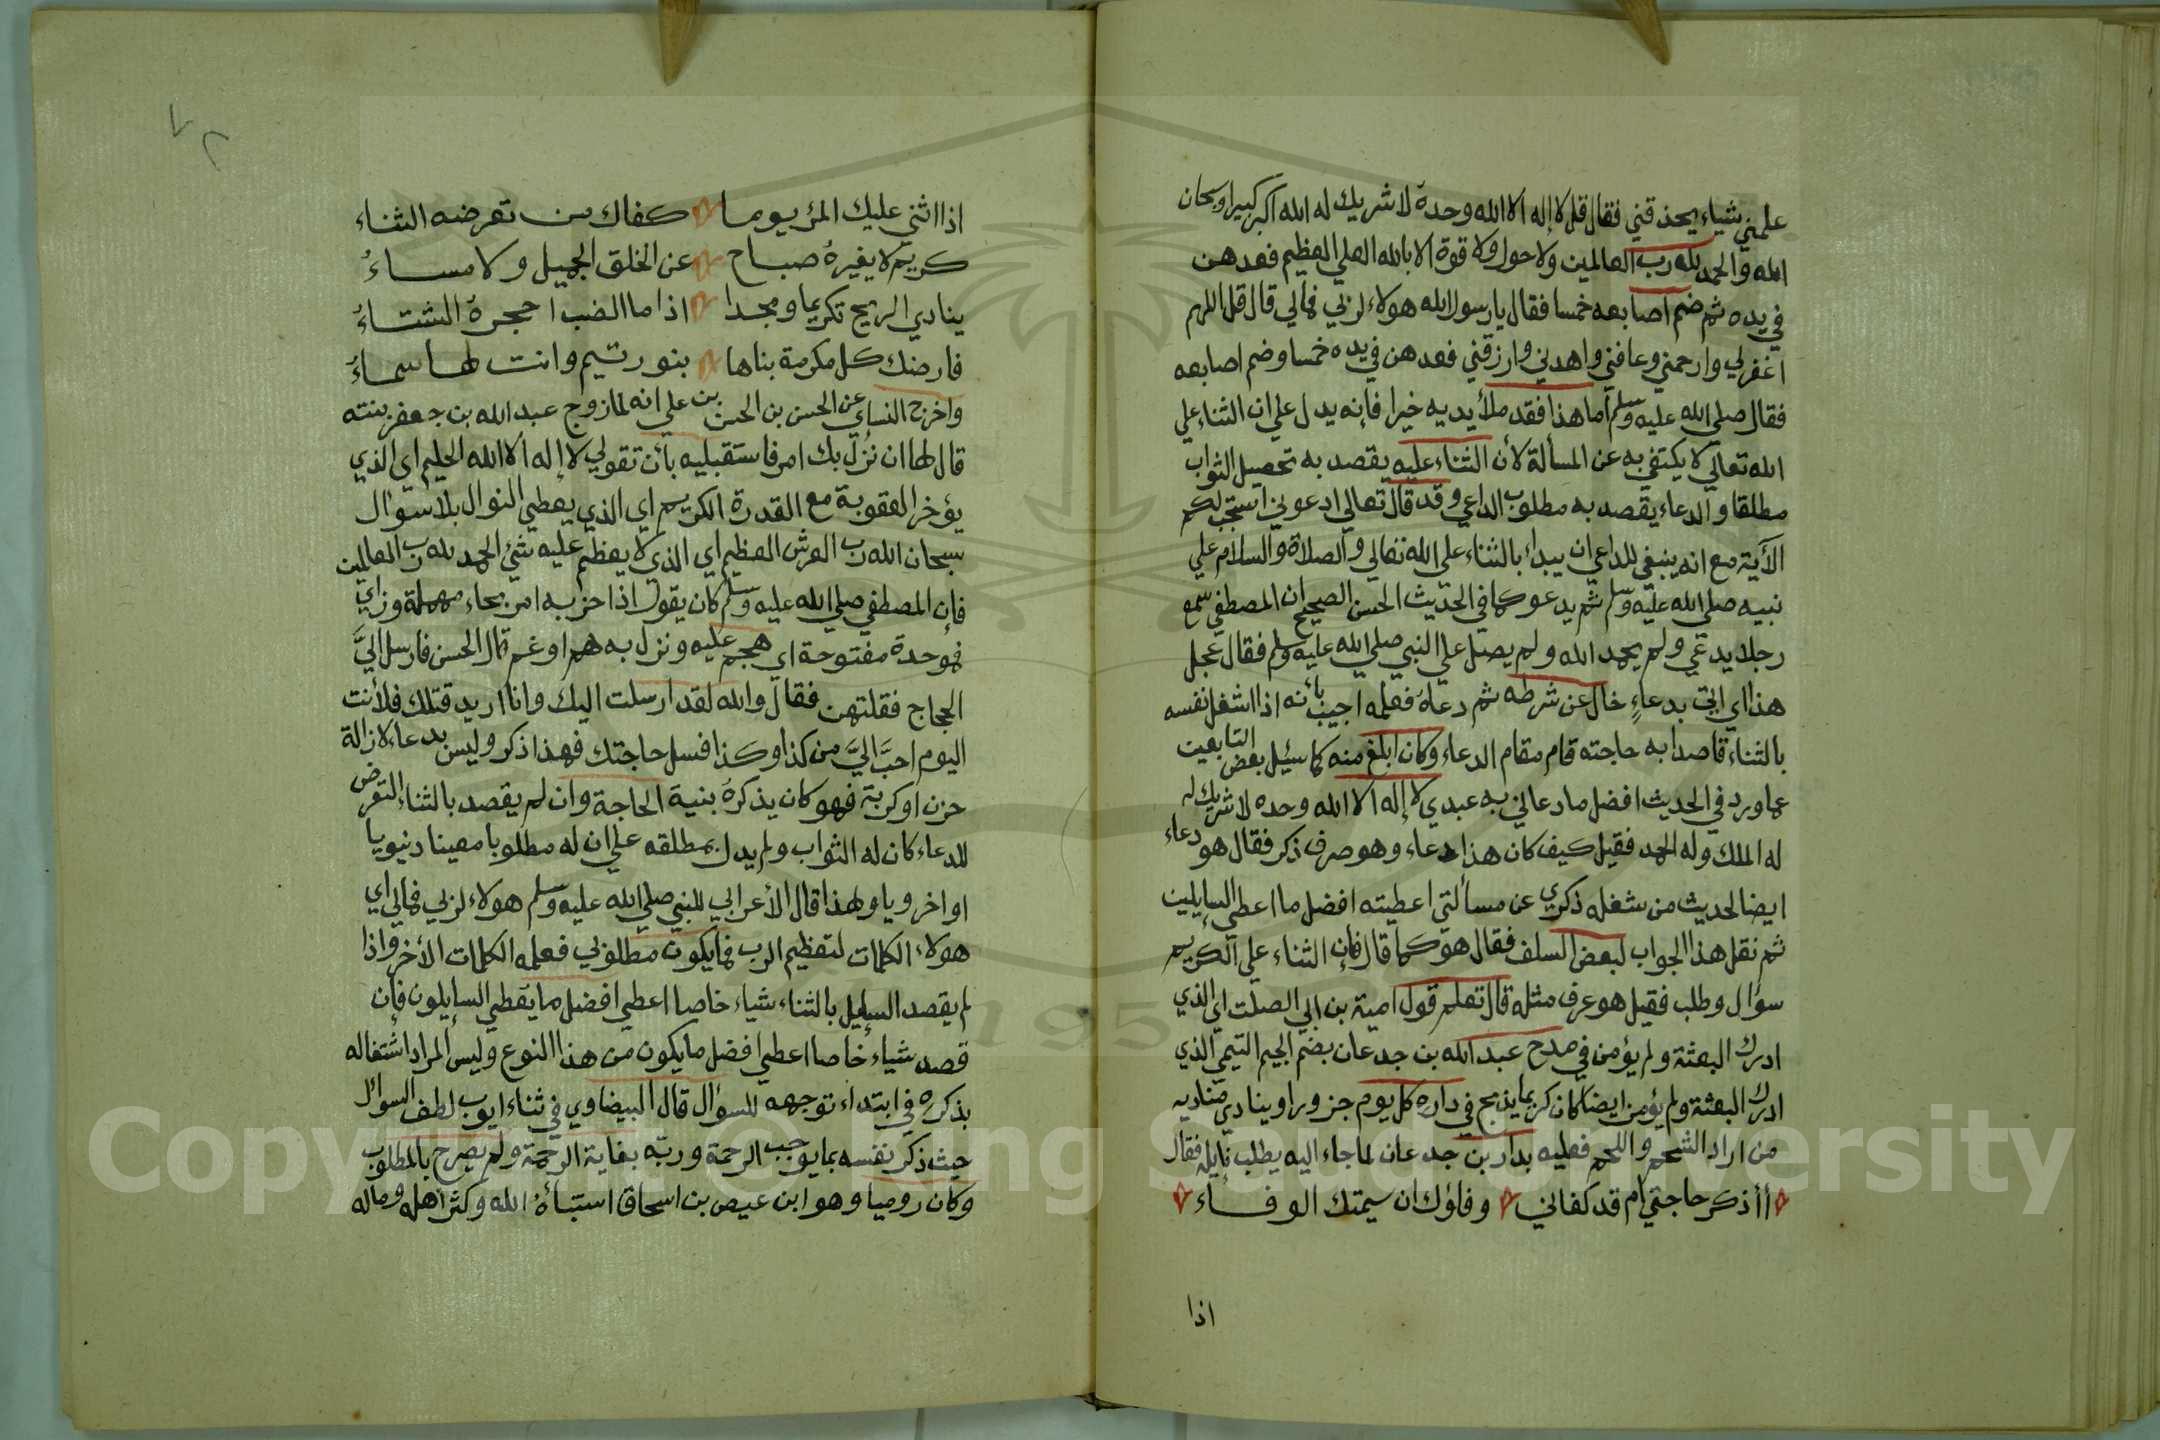 علمني شياء يحذقني فقال قل لا إله الا الله وحده لا شريك له الله اكبر كبيرا وسبحان
الله والحمد لله رب العالمين ولا حول ولا قوة الا بالله العلي العظيم فعدهن
في يده ثم ضم اصابعه خمسا فقال يا رسول الله هولاء لربي فمالي قال قل اللهم
اغفر لي وارحمني وعافني واهدني وارزقني فعدهن في يده خمسا وضم اصابعه
فقال صلي الله عليه وسلم اما هذا فقد ملأ يديه خيرا فإنه يدل علي ان الثناء علي
الله تعالي لا يكتفي به عن المسألة لأن الثناء عليه يقصد به تحصيل الثواب
مطلقا والدعاء يقصد به مطلوب الداعي وقد قال تعالي ادعوني استجب لكم
الآية مع انه ينبغي للداعي ان يبداء بالثناء علي الله تعالي والصلاة والسلام علي
نبيه صلي الله عليه وسلم ثم يدعو كما في الحديث الحسن الصحيح ان المصطفي سمع
رجلا يدعي ولم يحمد الله ولم يصل علي النبي صلي الله عليه وسلم فقال عجل
هذا اي اتي بدعاءٍ خال عن شرطه ثم دعاهُ فعلمه اجيب بأنه اذا اشغل نفسه
بالثناء قاصدا به حاجته قام مقام الدعاء وكان ابلغ منه كما سئيل بعض التابعين
عما ورد في الحديث افضل ما دعاني به عبدي لا إله الا الله وحده لا شريك له
له الملك وله الحمد فقيل كيف كان هذا دعاء وهو صرف ذكر فقال هو دعاء
ايضا لحديث من شغله ذكري عن مسألتي اعطيته افضل ما اعطي السايلين
ثم نقل هذا الجواب لبعض السلف فقال هو كما قال فإن الثناء علي الكريم
سوال وطلب فقيل هو عرف مثله قال تعلم قول امية بن ابي الصلت اي الذي
ادرك البعثة ولم يؤمن في مدح عبد الله بن جدعان بضم الجيم التيمي الذي
ادرك البعثة ولم يؤمن ايضا كان كريما يذبح في داره كل يوم جزورا وينادي مناديه
من اراد الشحم واللحم فعليه بدار بن جدعان لما جاء اليه يطلب نايله فقال
أأذكر حاجتي ام قد كفاني وفاؤك ان سيمتك الوفاء
اذا
اذا اثني عليك المرؤ يوما كفاك من تعرضه الثناء
كريم لا يغيرهُ صباح عن الخلق الجميل ولا مساءُ
ينادي الريح تكريما ومجدا اذا ما الضب احجرهُ الشتاءُ
فارضك كل مكرمة بناها بنو تيم وانت لها سماءُ
واخرج النساءي عن الحسن بن الحسن بن علي انه لما زوج عبد الله بن جعفر بنته
قال لها ان نزل بك امر فاستقبليه بأن تقولي لا إله الا الله الحليم اي الذي
يؤخر العقوبة مع القدرة الكريم اي الذي يعطي النوال بلا سوال
سبحان الله رب العرش العظيم اي الذي لا يعظم عليه شئ الحمد لله رب العالمين
فإن المصطفي صلي الله عليه وسلم كان يقول اذا حزبه امر بحاء مهملة وزاي
فموحدة مفتوحة اي هجم عليه ونزل به هم او غم قال الحسن فارسل اليَّ
الحجاج فقلتهن فقال والله لقد ارسلت اليك وانا اريد قتلك فلأنت
اليوم احبَّ اليَّ من كذا وكذا فسل حاجتك فهذا ذكر وليس بدعاء لازالة
حزن او كربة فهو كان يذكرهُ بنية الحاجة وان لم يقصد بالثناء التعرض
للدعاء كان له الثواب ولم يدل بمطلقه علي ان له مطلوبا معينا دنيويا
او اخرويا ولهذا قال الأعرابي للنبي صلي الله عليه وسلم هولاء لربي فمالي اي
هولاء الكلمات لتعظيم الرب فما يكون مطلوبي فعلمه الكلمات الأخر واذا
لم يقصد السايل بالثناء شياء خاصا اعطي افضل ما يعطي السايلون فإن
قصد شياء خاصا اعطي افضل ما يكون من هذا النوع وليس المراد اشتغاله
بذكره في ابتداء توجهه للسوال قال البيضاوي في ثناء ايوب لطف السوال
حيث ذكر نفسه بما يوجب الرحمة وربّه بغاية الرحمة ولم يصرح بالمطلوب
وكان روميا وهو ابن عيص بن اسحاق استنبأهُ الله وكثر اهله وماله
Copyright © King Saud University
195